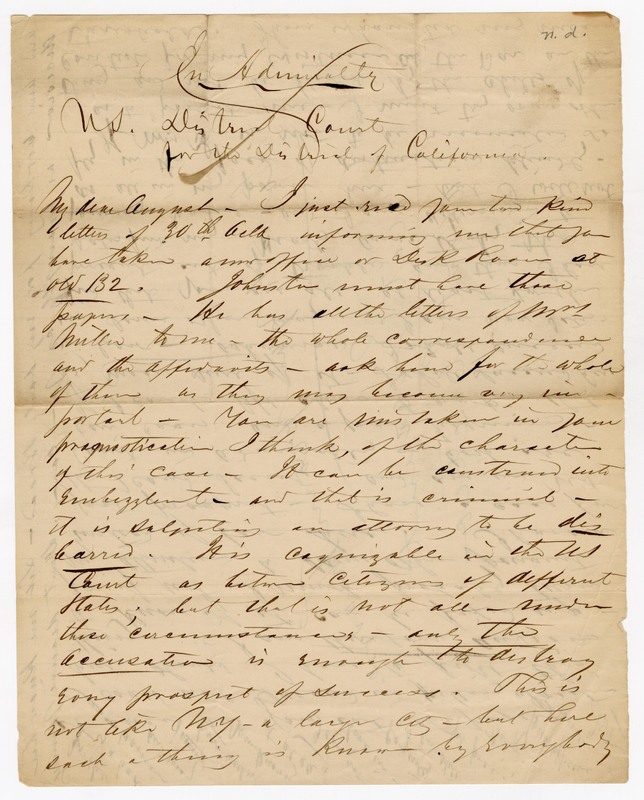 n. d.
In Admiralty
U.S. District Court
for the District of California.
My dear August – I just recd your two kind
letters of 30th Octr informing me that you
have taken a new office or Desk Room at
old 132. Johnston must have those
papers – He has all the letters of Mrs
Miller to me – the whole correspondence
and the affidavits – ask him for the whole
of them as they may become very im-
portant – You are mistaken in your
prognostication I think, of the character
of this case – It can be construed into
Embezzlement – and that is criminal –
it is subjecting an attorney to be dis
barred. It is cognizable in the US
Court as between Citizens of different
States; but that is not all – under
these circumstances – only the
accusation is enough to destroy
every prospect of success. This is
not like NY – a large city – but here
such a thing is known by Everybody